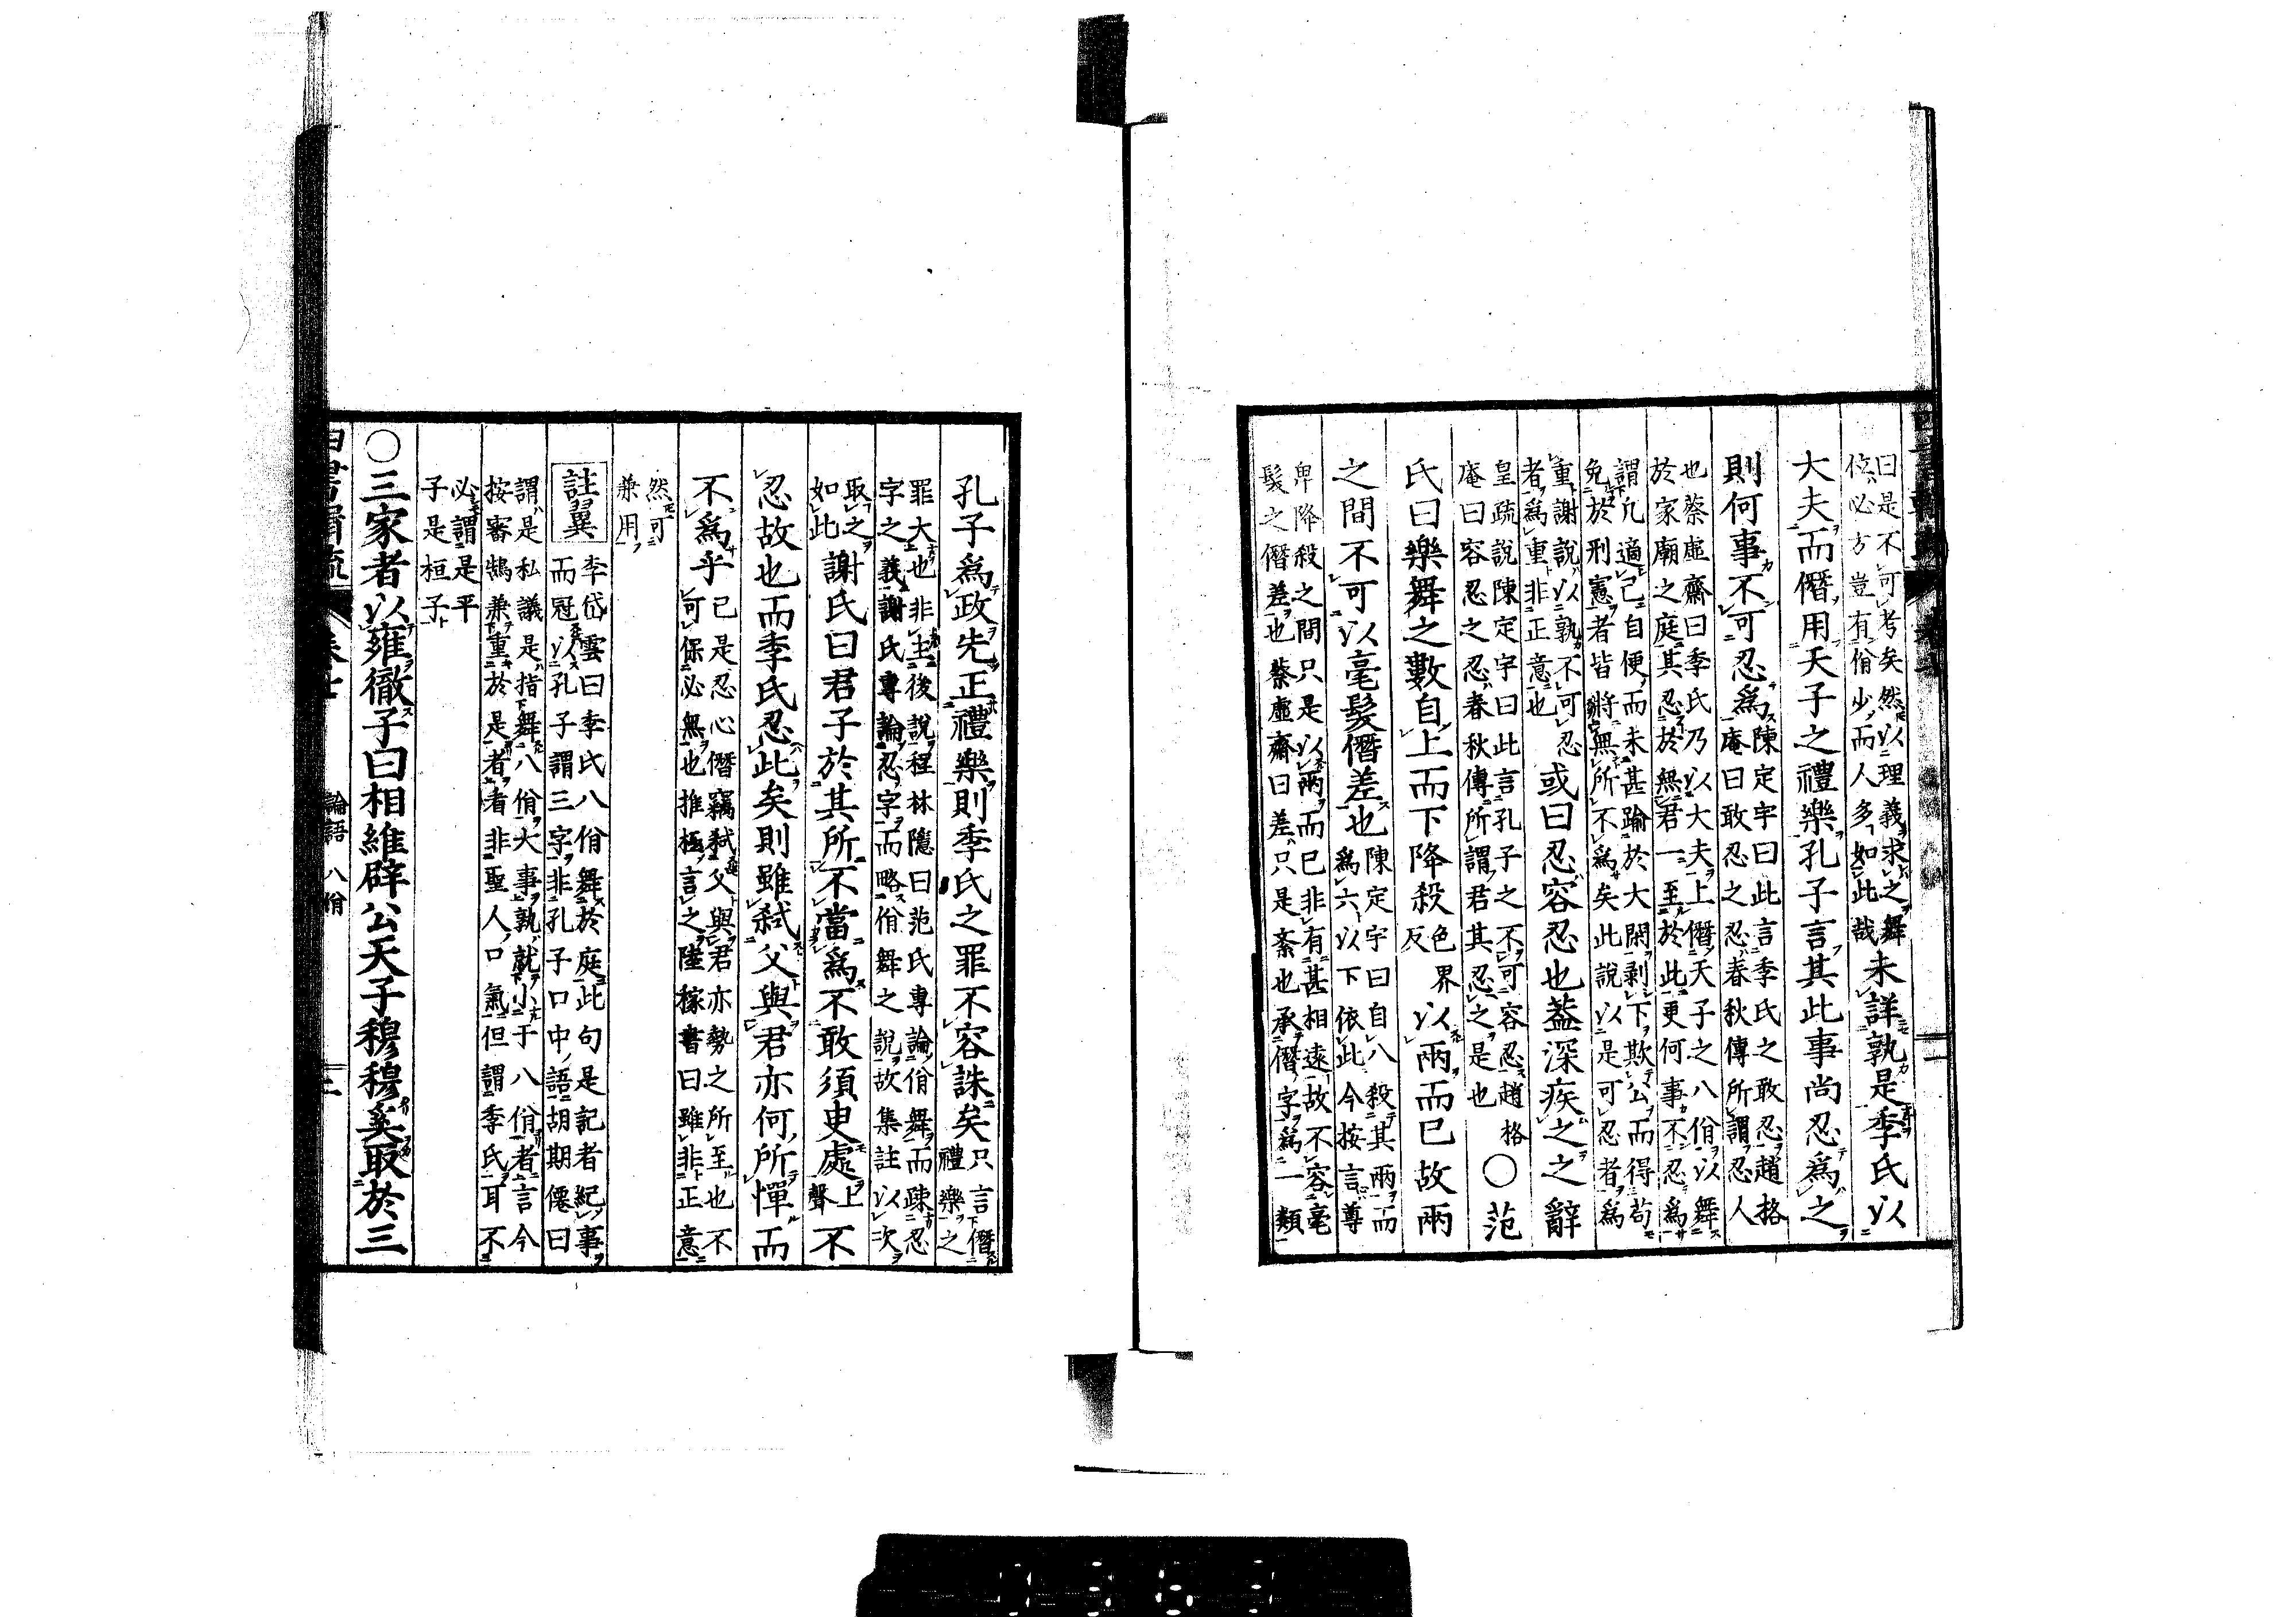 曰是不可考矣然以理義求之舞
佾必方豈有佾少而人多如此哉
未詳孰是季氏以
大夫而僭用天子之禮樂孔子言其此事尚忍爲之
則何事不可忍爲
陳定宇曰此言季氏之敢忍趙格
庵曰敢忍之忍春秋傳所謂忍人
也蔡虛齋曰季氏乃以大夫上僭天子之八佾以舞
於家廟之庭其忍於無君一至於此更何事不忍爲
謂凢適己自便而未甚踰於大閑剥下欺公而得苟
免於刑憲者皆將無所不爲矣此說以是可忍者爲
重謝說以孰不可忍
者爲重非正意也
或曰忍容忍也蓋深疾之之辭
皇疏說陳定宇曰此言孔子之不可容忍趙格
庵曰容忍之忍春秋傳所謂君其忍之是也
○范
氏曰樂舞之數自上而下降殺色界反以兩而已故兩
之間不可以毫髮僭差也
陳定宇曰自八殺其兩而
爲六以下依此今按言尊
卑降殺之間只是以兩而已非有甚相遠故不容毫
髮之僭差也蔡虛齋曰差只是紊也承僭字爲一類
孔子爲政先正禮樂則季氏之罪不容誅矣
只言僭
禮樂之
罪大也非主後說程林隱曰范氏專論佾舞而疎忍
字之義謝氏專論忍字而略佾舞之說故集註以次
取之
如此
謝氏曰君子於其所不當爲不敢須臾處上聲不
忍故也而季氏忍此矣則雖弑父與君亦何所憚而
不爲乎
已是忍心僭竊弑父與君亦勢之所至也不
可保必無也推極言之陸稼書曰雖非正意
然可
兼用
註翼
李岱雲曰季氏八佾舞於庭此句是記者紀事
而冠以孔子謂三字非孔子口中語胡期僊曰
謂是私議是指舞八佾大事孰就小于八佾者言今
按審鵠兼重於是者者非聖人口氣但謂季氏耳不
必謂是平
子是桓子
○三家者以雍徹子曰相維辟公天子穆穆奚取於三
論語 八佾